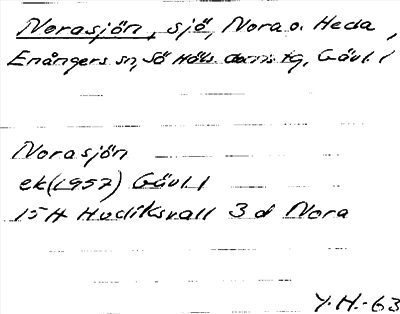 Norasjön, sjö, Nora o. Heda,
Enångers sn, Sö Häls. doms tg, Gävl. l
Norasjön
ek (1957) Gävl. l
15H Hudiksvall 3 d Nora
Y.H.-63